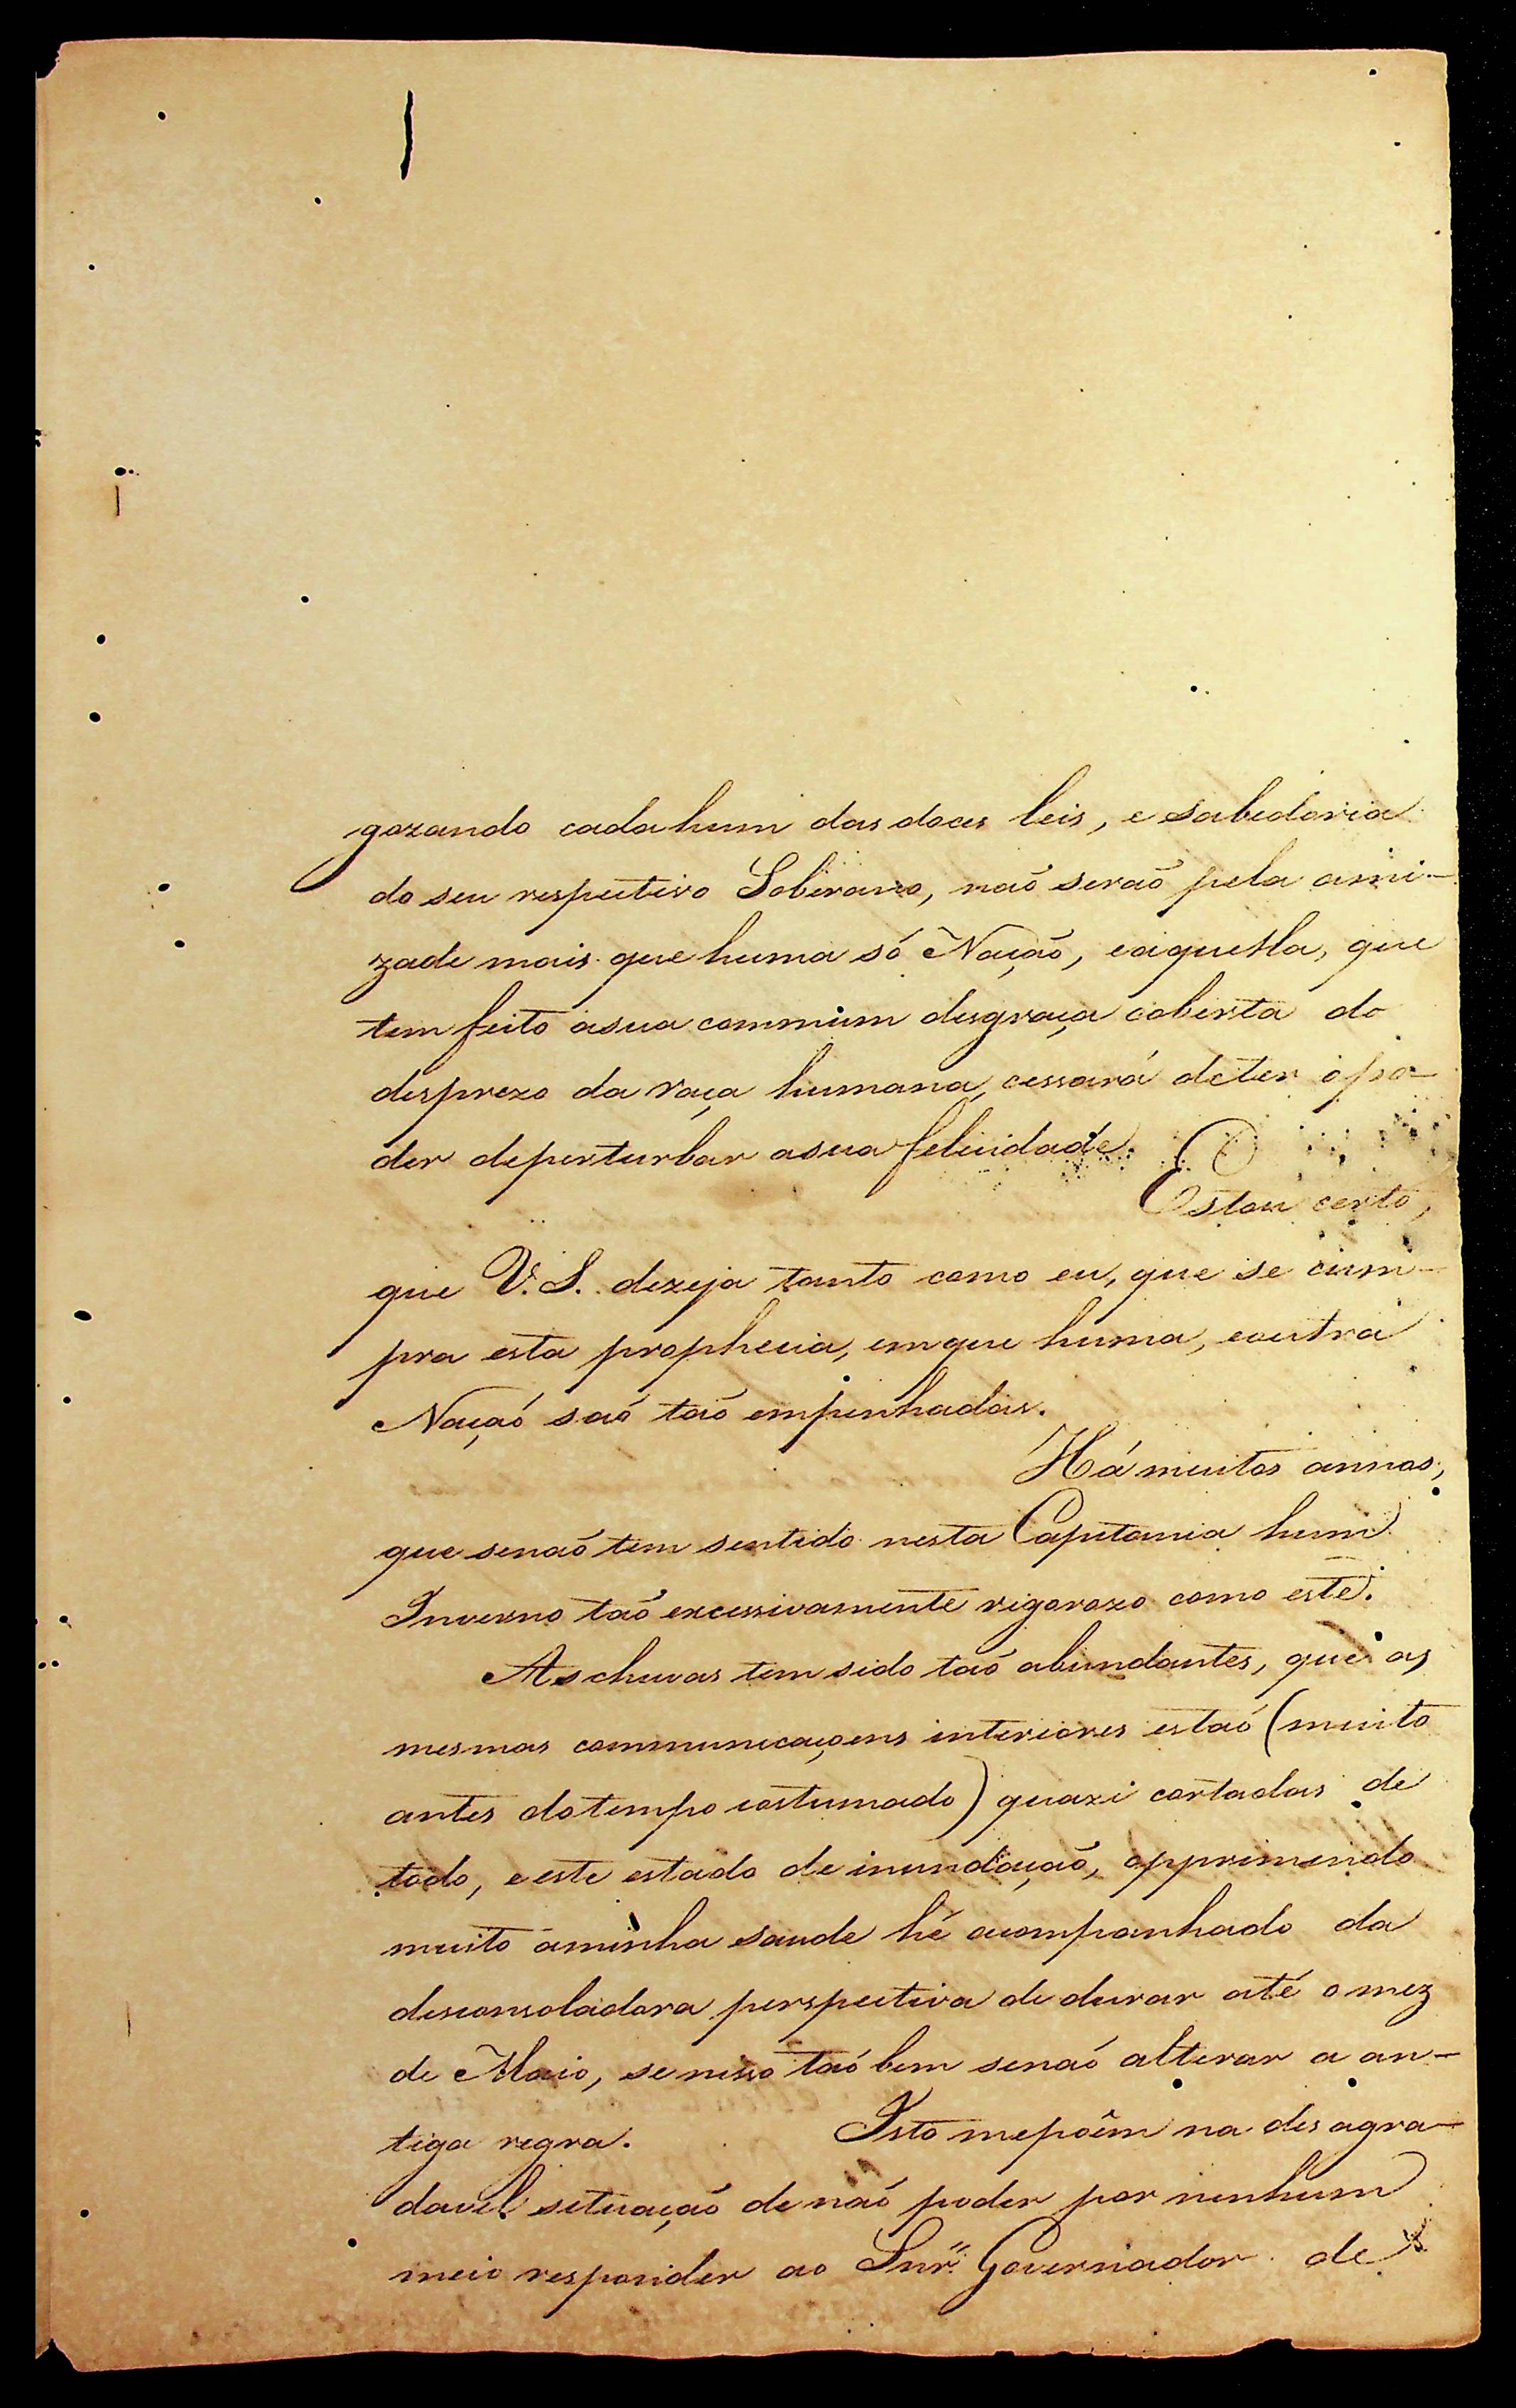 gozando cada hum das doces leis, e sabedoria
do seu respectivo Soberano, naõ seraõ pela ami-
zade mais que huma só Naçaõ, eaquella, que
tem feito asua commum desgraça coberta do
desprezo da raça humana, cessará deter opo-
der deperturbar asua felicidade.
Estou certo,
que V. S. dezeja tanto como eu, que se cum-
pra esta prophecia, emque huma, eoutra
Naçaõ saõ taõ empenhadas.
Há muitos annos,
que senaõ tem sentido nesta Capitania hum
Inverno taõ excessivamente rigorozo como este.
As chuvas tem sido taõ abundantes, que as
mesmas communicaçoens interiores estaõ (muito
antes dotempo costumado) quazi cortadas de
todo, eeste estado de inundaçaõ, opprimindo
muito aminha saude hé acompanhado da
desconsoladora perspectiva de durar até o mez
de Maio, se nisso taõ bem senaõ alterar a an-
tiga regra. Isto mepoêm na desagra-
davel setuaçaõ de naõ poder por nenhum
meio responder ao Snr. Governador de